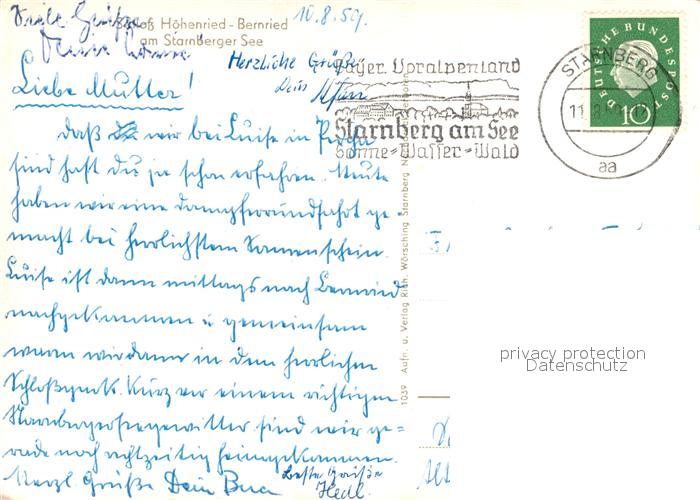 Viele Grüße
Schloß Höhenried - Bernried
am Starnberger See
10.8.59.
Herzliche Grüße
Dein
Bayer. Voralpenland
Starnberg am See
Sonne-Wasser-Wald
STARNBERG
11.8.
aa
DEUTSCHE BUNDESPOST
10
Liebe Mutter!
Daß wir bei Luise in Percha
sind hast du ja schon erfahren. Heute
haben wir eine Dampferrundfahrt ge-
macht bei herrlichstem Sonnenschein.
Luise ist dann mittags nach Bernried
nachgekommen u. gemeinsam
waren wir dann in dem herrlichen
Schloßpark. Kurz vor einem richtigen
Starnbergerseegewitter sind wir ge-
rade noch rechtzeitig heimgekommen.
Herzl. Grüße Dein
Beste Grüße
Hedl.
1039 Aufn. u. Verlag Rich. Wörsching Starnberg
privacy protection
Datenschutz